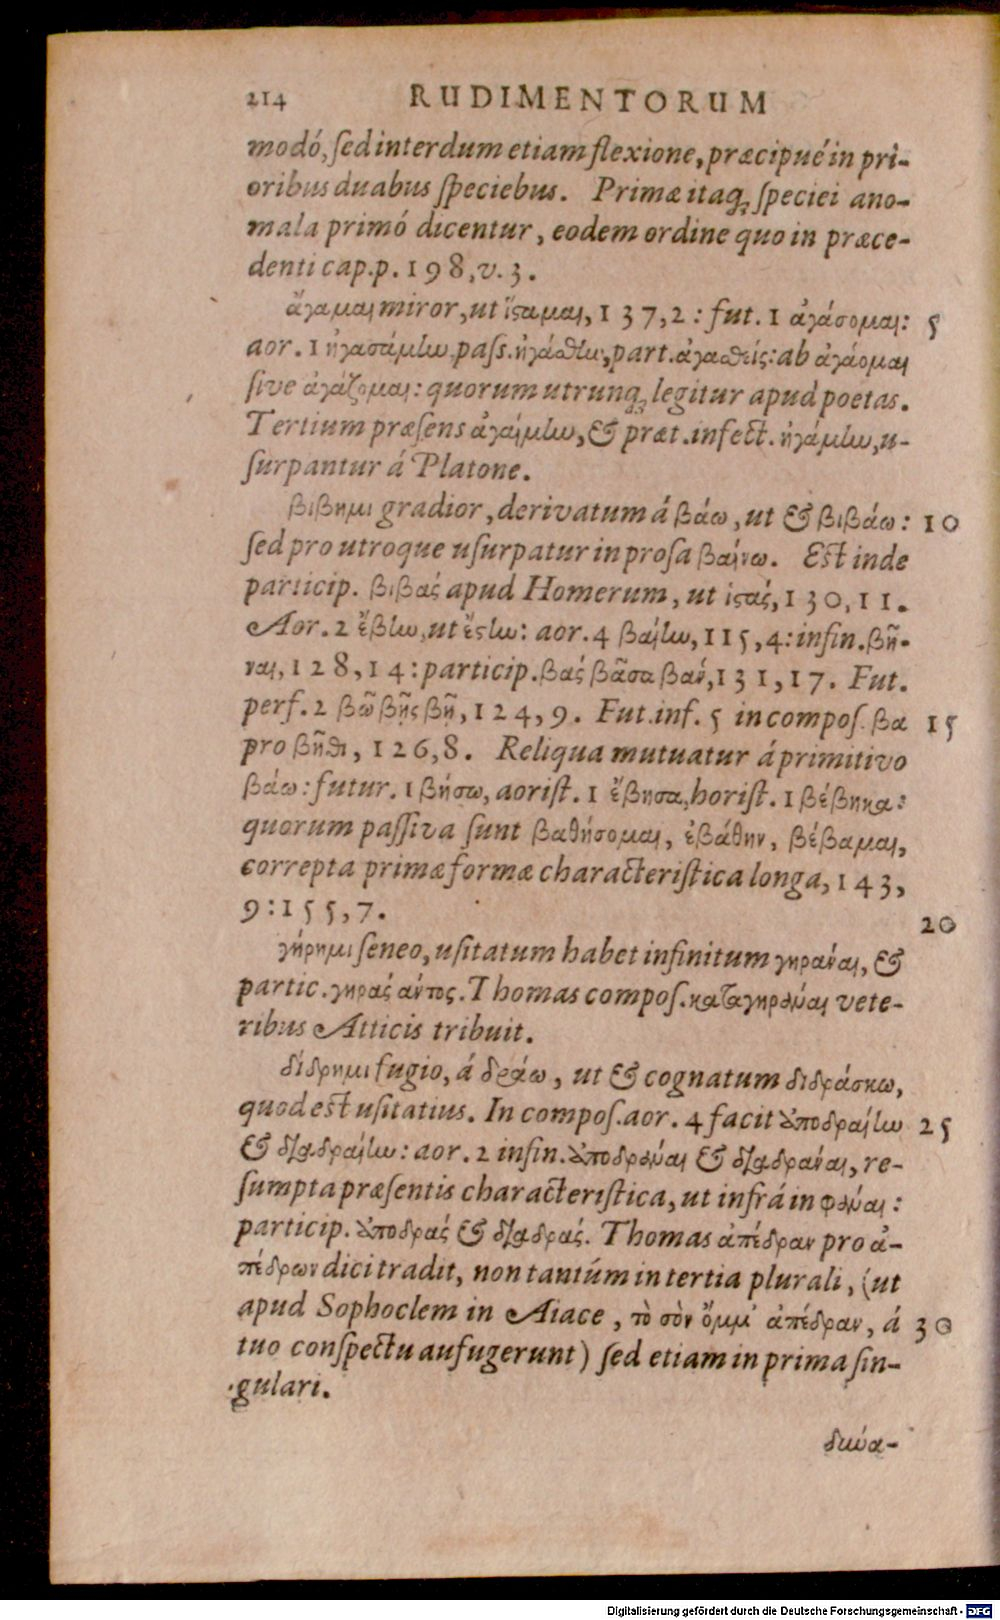 214 RUDIMENTORUM
modó, sed interdum etiam flexione, præcipué in pri-
oribus duabus speciebus. Primæ itaq; speciei ano-
mala primó dicentur, eodem ordine quo in præce-
denti cap. p. 198, v. 3.
ἄγαμαι miror, ut ἵςαμαι, 137, 2 : fut. 1 ἀγάσομαι: 5
aor. 1 ἠγασάμην, pass. ἠγάσθην, part. ἀγασθείς: ab ἀγάομαι
sive ἀγάζομαι: quorum utrunq; legitur apud poetas.
Tertium præsens ἀγαίμην, & præt. infect. ἠγάμην, u-
surpantur á Platone.
βιβημι gradior, derivatum á βάω, ut & βιβάω : 10
sed pro utroque usurpatur in prosa βαίνω. Est inde
particip. βιβας apud Homerum, ut ἱςας, 130, 11.
Aor. 2 ἔβην, ut ἔςην: aor. 4 βαίην, 115, 4: infin. βῆ-
ναι, 128, 14: particip. βας βᾶσα βαν, 131, 17. Fut.
perf. 2 βῶ βῇς βῇ, 124, 9. Fut. inf. 5 in compos. βα 15
pro βῆθι, 126, 8. Reliqua mutuatur á primitivo
βάω: futur. 1 βήσω, aorist. 1 ἔβησα, horist. 1 βέβηκα:
quorum passiva sunt βαθήσομαι, ἐβάθην, βέβαμαι,
correpta primæ formæ characteristica longa, 143,
9 : 155, 7. 20
γήρημι seneo, usitatum habet infinitum γηράναι, &
partic. γηρας άντος. Thomas compos. καταγηράναι vete-
ribus Atticis tribuit.
δίδρημι fugio, á δράω, ut & cognatum διδράσκω,
quod est usitatius. In compos. aor. 4 facit ἀποδραίην 25
& διαδραίην: aor. 2 infin. ἀποδράναι & διαδράναι, re-
sumpta præsentis characteristica, ut infrá in φάναι:
particip. ἀποδράς & διαδράς. Thomas ἀπέδραν pro ἀ-
πέδρων dici tradit, non tantúm in tertia plurali, (ut
apud Sophoclem in Aiace, τὸ σὸν ὄμμ' ἀπέδραν, á 30
tuo conspectu aufugerunt) sed etiam in prima sin-
gulari.
δεινα-
Digitalisierung gefördert durch die Deutsche Forschungsgemeinschaft - DFG